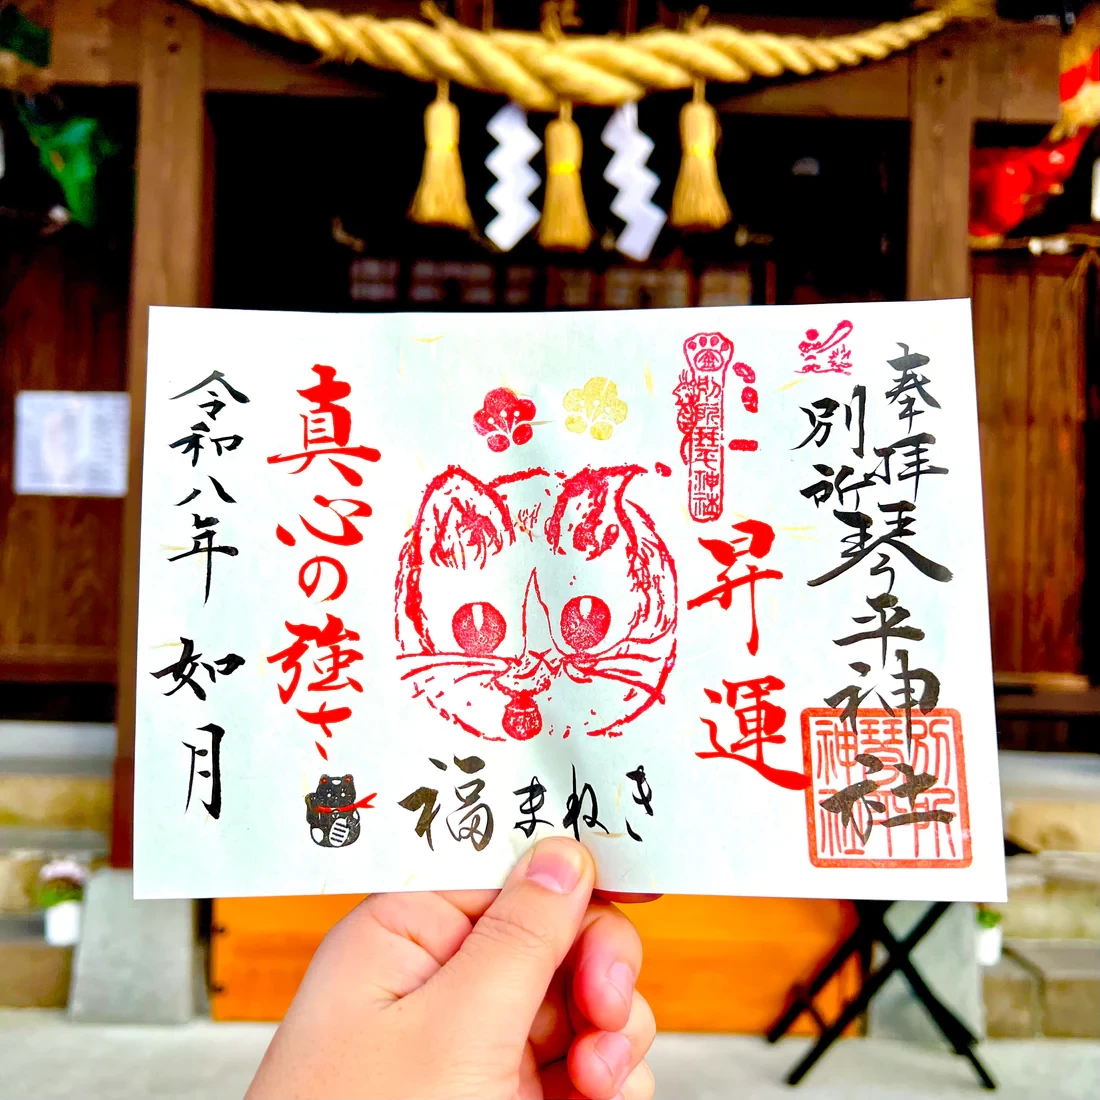 奉拝
別所琴平神社
金別所琴平神社
昇運
別所琴平神社
福まねき
真心の強さ
令和八年 如月